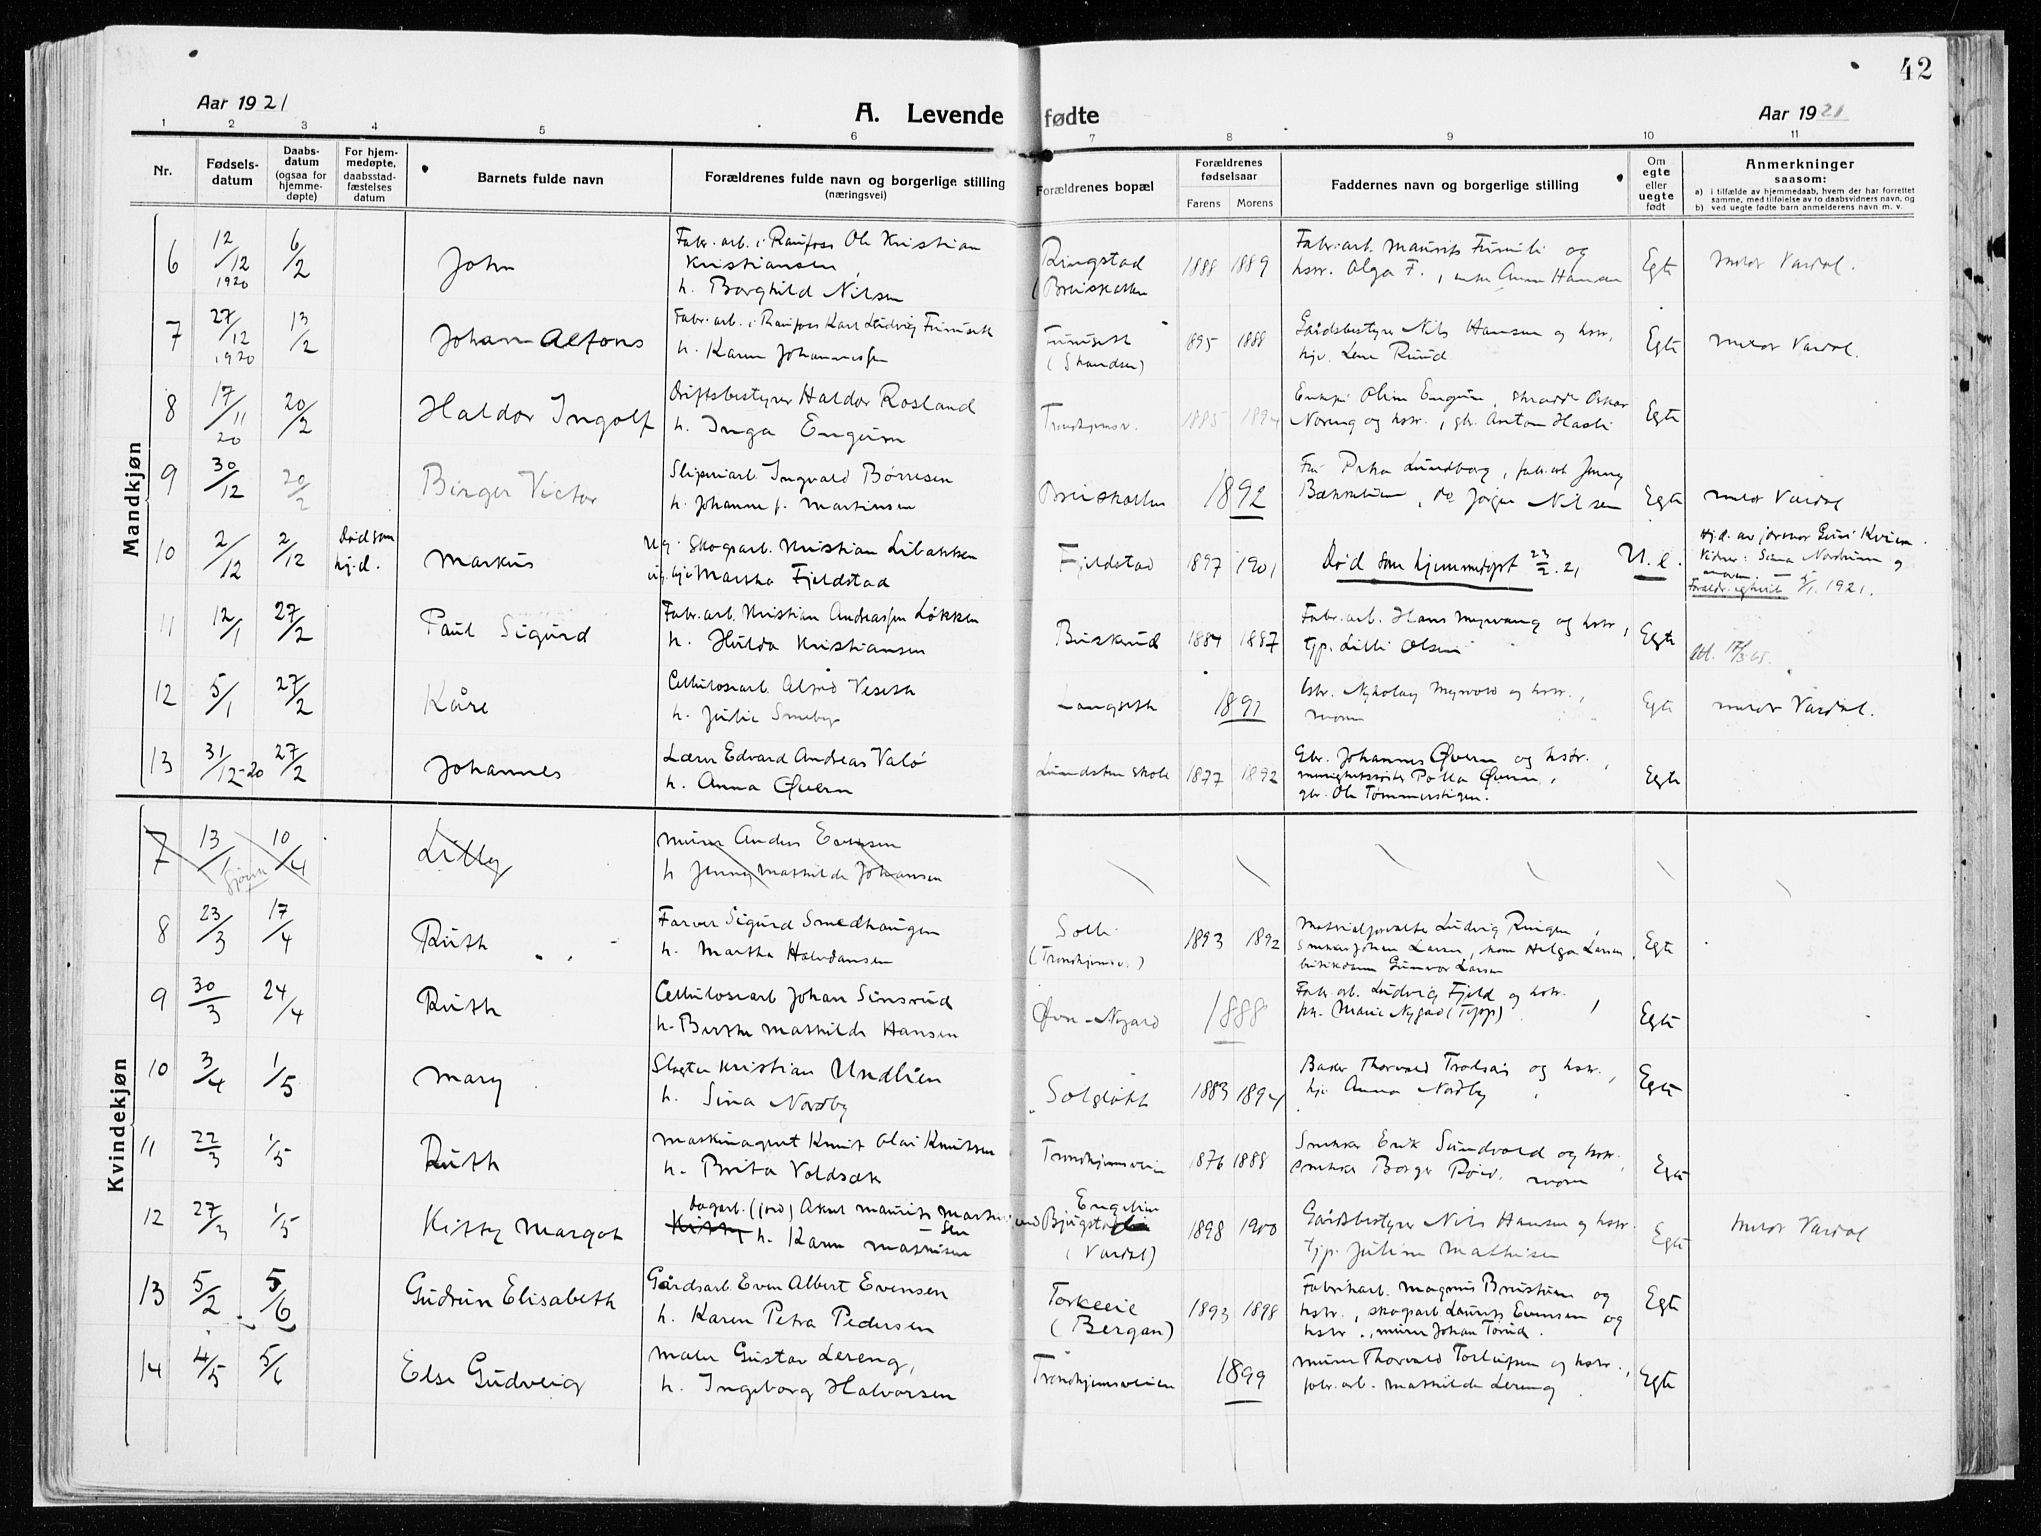 42
Aar 1921
A. Levende fødte
Aar 1921
1 2 3 4 5 6 7 8 9 10 11
Nr.
Fødsels-
datum
Daabs-
datum
(ogsaa for
hjemme-
døpte)
For hjem-
medøpte,
daabsstad-
fæstelses
datum
Barnets fulde navn
Forældrenes fulde navn og borgerlige stilling
(næringsvei)
Forældrenes bopæl
Forældrenes
fødselsaar
Farens Morens
Faddernes navn og borgerlige stilling
Om
egte
eller
uegte
født
Anmerkninger
saasom:
a) i tilfælde av hjemmedaab, hvem der har forrettet
samme, med tilføielse av to daabsvidners navn, og
b) ved uegte fødte barn anmelderens navn m. v.
Mandkjøn
6 12/12 1920 6/2 John
Fabr.arb. i Raufoss Ole Kristian
Kristiansen,
h. Borghild Nilsen
Ringstad
(Breiskallen
1888 1889
Fabr.arb. Maurits og
hstr. Olga F., Anna Hansen
Egte
Melor Vardal.
7 27/12 1920 13/2 Johan Alfons
Fabr.arb. i Raufoss Karl Ludvig Furuseth
h. Karen Johannessen
Furuseth
(Skandsen)
1895 1888
Gårdsbestyrer Nils Hansen og hstr.,
Lene Ruud
Egte
Melor Vardal.
8 17/11 20 20/2 Haldor Ingolf
Driftsbestyrer Haldor Rosland
h. Inga Engum
Trondhjemsv.
1885 1894
Oline Engum, Oskar
Noreng og hstr., Anton Hasli
Egte
9 30/12 20/2 Birger Victor
Sliperiarb. Ingvald Børresen
h. Johanne f. Martinsen
Breiskallen
1892
Petra Lundborg, fabr.arb. Jenny
Jørgen Nilsen
Egte
Melor Vardal
10 2/12 2/12 Død som
hj.d.
Markus
Ug. Skogsarb. Kristian Libakken
ug. Martha Fjeldstad
Fjeldstad
1897 1901
Død som hjemmedøpt 23/2.21
U.e.
Hj.d. av jormor Guri Kvien.
Vidner: Sina Nordrum og
1921.
11 12/1 27/2 Paul Sigurd
Fabr.arb. Kristian Andreassen Løkken
h. Hulda Kristiansen
Buskrud
1884 1887
Fabr.arb. Hans Myrvang og hstr.,
Lilli Olsen
Egte
Att. 17/3 65.
12 5/1 27/2 Kåre
Cellulosearb. Alfred Veseth
h. Julie Smeby
Langseth
1891
Nykolay Myrvold og hstr.,
moren
Egte
Melor Vardal.
13 31/12-20 27/2 Johannes
Lærer Edvard Andreas Valø
h. Anna Øvern
Lundsten skole
1877 1892
Gbr. Johannes Øvern og hstr.,
Øvern,
gbr. Ole Tømmerstigen.
Egte
Kvindekjøn
7 13/1 10/4 Lilly
Murer Anders Evensen
h. Jenny Mathilde Johansen
8 23/3 17/4 Ruth
Farver Sigurd Smedhaugen
h. Martha Halvdansen
Solli
(Trondhjemsv.)
1893 1892
Materialforvalter Ludvig Ringen,
Snekker Johan Larsen, Helga Larsen,
Gunvor Larsen
Egte
9 30/3 24/4 Ruth
Cellulosearb. Johan Sinsrud
h. Berthe Mathilde Hansen
Øvre-Nygard
1888
Fabr.arb. Ludvig Fjeld og hstr.,
Marie Nygård (Topp)
Egte
10 3/4 1/5 Mary
Slagter Kristian Undlien
h. Sina Nordby
Solgløtt
1883 1894
Baker Thorvald og hstr.,
Anna Nordby
Egte
11 22/3 1/5 Ruth
Maskinagent Knut Olai Knutsen
h. Brita Voldsæk
Trondhjemsveien
1876 1888
Snekker Erik Sundvold og hstr.,
snekker Borger moren
Egte
12 27/3 1/5 Kitty Margot
Dagarb. (jord) Aksel Maurits
Kitty h. Karen Mathisen
Engelien
(Vardal)
1898 1900
Gårdbestyrer Nils Hansen og hstr.
Juline Mathisen
Egte
Melor Vardal
13 5/2 5/6 Gudrun Elisabeth
Gårdsarb. Even Albert Evensen
h. Karen Petra Pedersen
Torkeeie
(Bergan)
1893 1898
Fabrikarb. Magnus og
hstr., skogsarb. Laurits Evensen og
hstr., murer Johan Torud.
Egte
14 4/5 5/6 Else Gudveig
Maler Gustav Lereng,
h. Ingeborg Halvorsen
Trondhjemsveien
1899
Murer Thorvald og hstr.,
fabr.arb. Mathilde Lereng
Egte